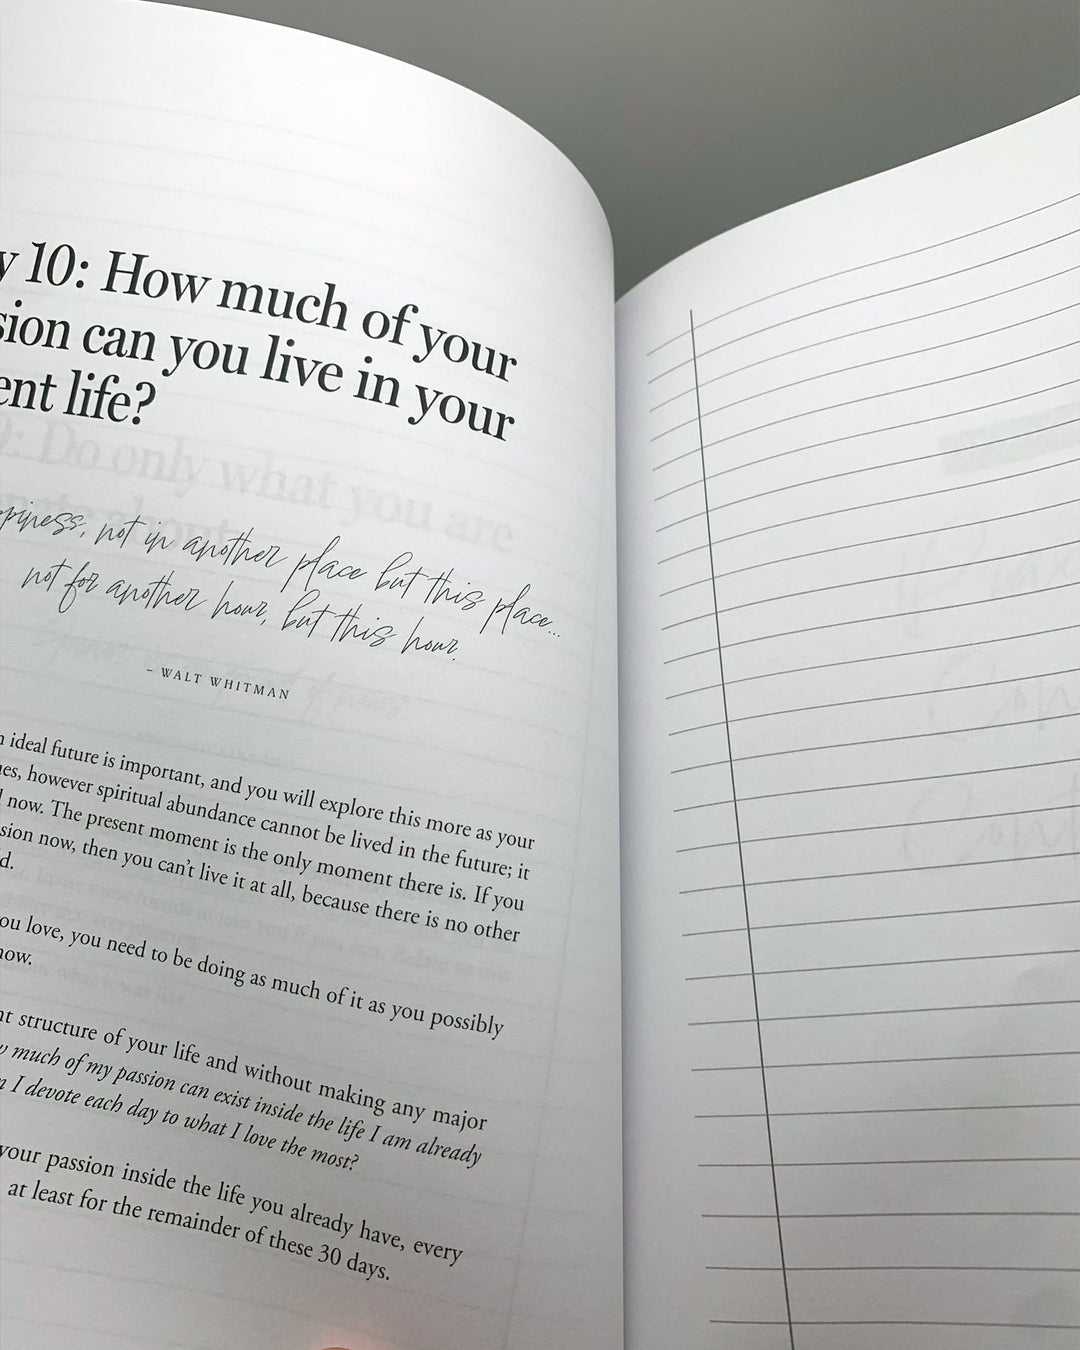 10: How much of your
can you live in your
life?
not in another place but this place...
not for another hour, but this hour.
– WALT WHITMAN
ideal future is important, and you will explore this more as your
however spiritual abundance cannot be lived in the future; it
now. The present moment is the only moment there is. If you
now, then you can't live it at all, because there is no other
you love, you need to be doing as much of it as you possibly
now.
structure of your life and without making any major
much of my passion can exist inside the life I am already
I devote each day to what I love the most?
your passion inside the life you already have, every
at least for the remainder of these 30 days.